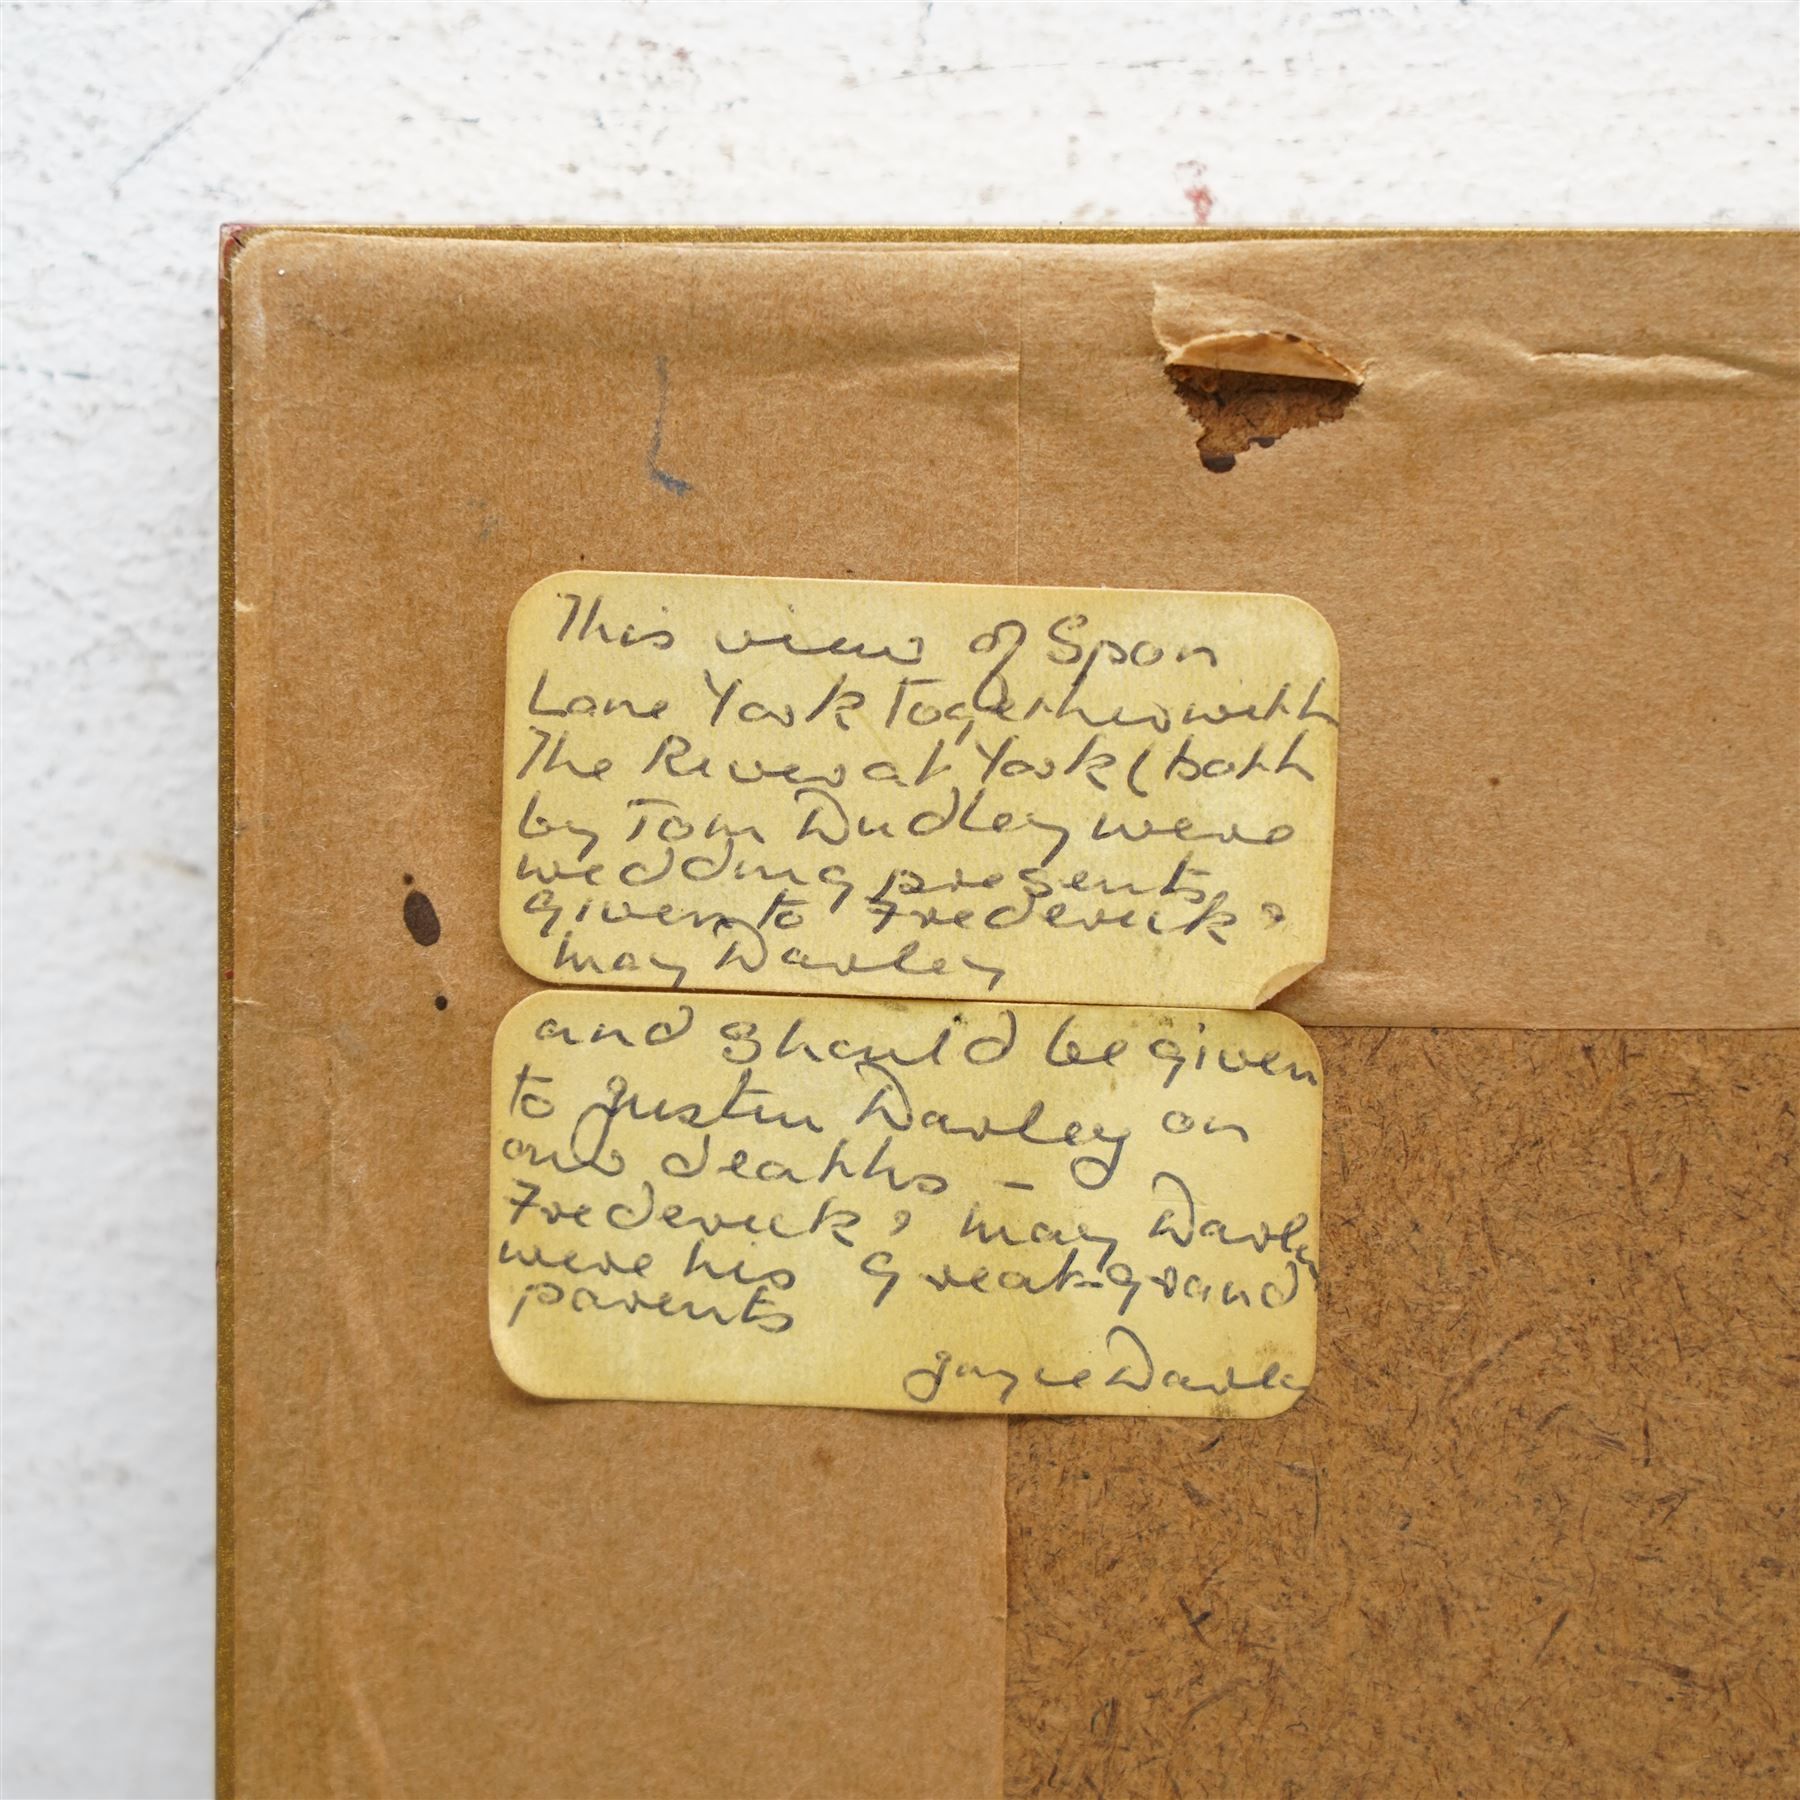 This view of Spon
Lane York Together with
The River at York (both
by Tom Dudley were
wedding presents
given to Frederick &
May Darley
and should be given
to Justin Darley on
our deaths –
Frederick & May Darley
were his great-grand
parents
Joyce Darle